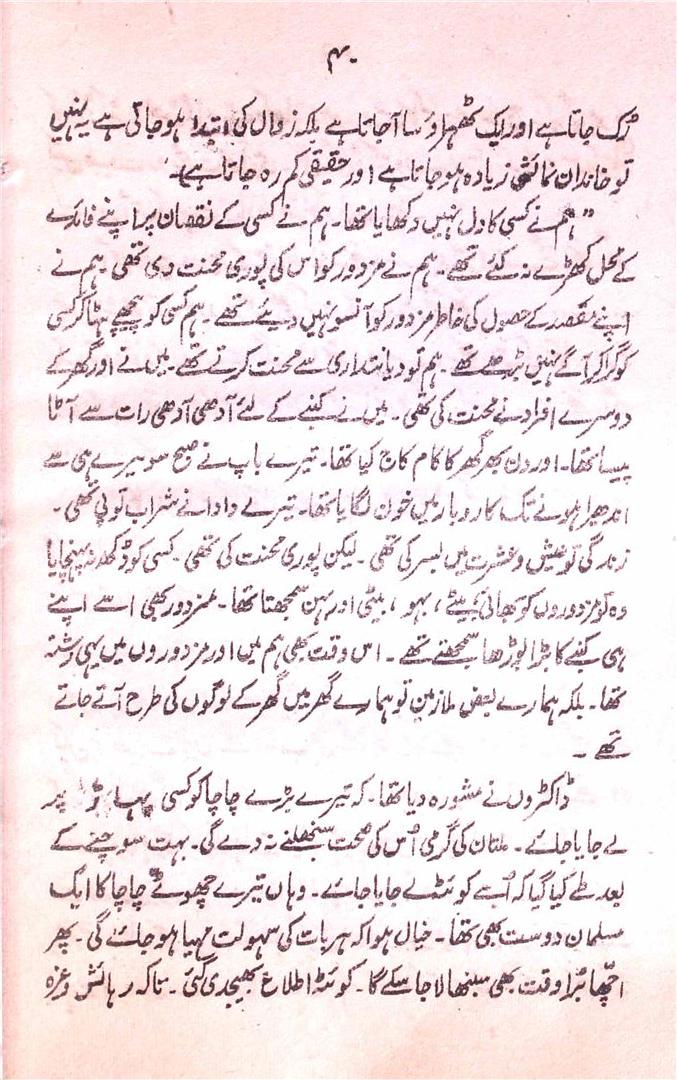 ۴۰
رک جاتا ہے اور ایک ٹھہراؤ سا آ جاتا ہے بلکہ زوال کی ابتدا ہو جاتی ہے یہیں
تو خاندان نمائشی زیادہ ہو جاتا ہے اور حقیقی کم رہ جاتا ہے۔
"ہم نے کسی کا دل نہیں دکھایا تھا۔ ہم نے کسی کے نقصان پر اپنے فائدے
کے محل کھڑے نہ کئے تھے۔ ہم نے مزدور کو اس کی پوری محنت دی تھی۔ ہم نے
اپنے مقصد کے حصول کی خاطر مزدور کو آنسو نہیں دیئے تھے۔ ہم کسی کو پیچھے ہٹا کر کسی
کو گرا کر آگے نہیں بڑھے تھے۔ ہم تو دیانتداری سے محنت کرتے تھے۔ میں نے اور گھر کے
دوسرے افراد نے محنت کی تھی۔ میں نے کنبے کے لئے آدھی آدھی رات سے آٹا
پیسا تھا۔ اور دن بھر گھر کا کام کاج کیا تھا۔ تیرے باپ نے صبح سویرے ہی سے
اندھیرا ہونے تک کاروبار میں خون لگایا تھا۔ تیرے دادا نے شراب تو پی تھی۔
زندگی تو عیش و عشرت میں بسر کی تھی۔ لیکن پوری محنت کی تھی۔ کسی کو دکھ نہ پہنچایا
وہ تو مزدوروں کو بھائی بیٹے، بہو، بیٹی اور بہن سمجھتا تھا۔ مزدور بھی اسے اپنے
ہی کنبے کا بڑا بوڑھا سمجھتے تھے۔ اس وقت بھی ہم میں اور مزدوروں میں یہی رشتہ
تھا۔ بلکہ ہمارے بعض ملازمین تو ہمارے گھر میں گھر کے لوگوں کی طرح آتے جاتے
تھے۔
ڈاکٹروں نے مشورہ دیا تھا۔ کہ تیرے بڑے چاچا کو کسی پہاڑ پر
لے جایا جائے۔ ملتان کی گرمی اُس کی صحت سنبھلنے نہ دے گی۔ بہت سوچنے کے
بعد طے کیا گیا کہ اُسے کوئٹے لے جایا جائے۔ وہاں تیرے چھوٹے چاچا کا ایک
مسلمان دوست بھی تھا۔ خیال ہوا کہ ہر بات کی سہولت مہیا ہو جائے گی۔ پھر
اچھا بُرا وقت بھی سنبھالا جا سکے گا۔ کوئٹہ اطلاع بھیجدی گئی۔ تاکہ رہائش وغیرہ